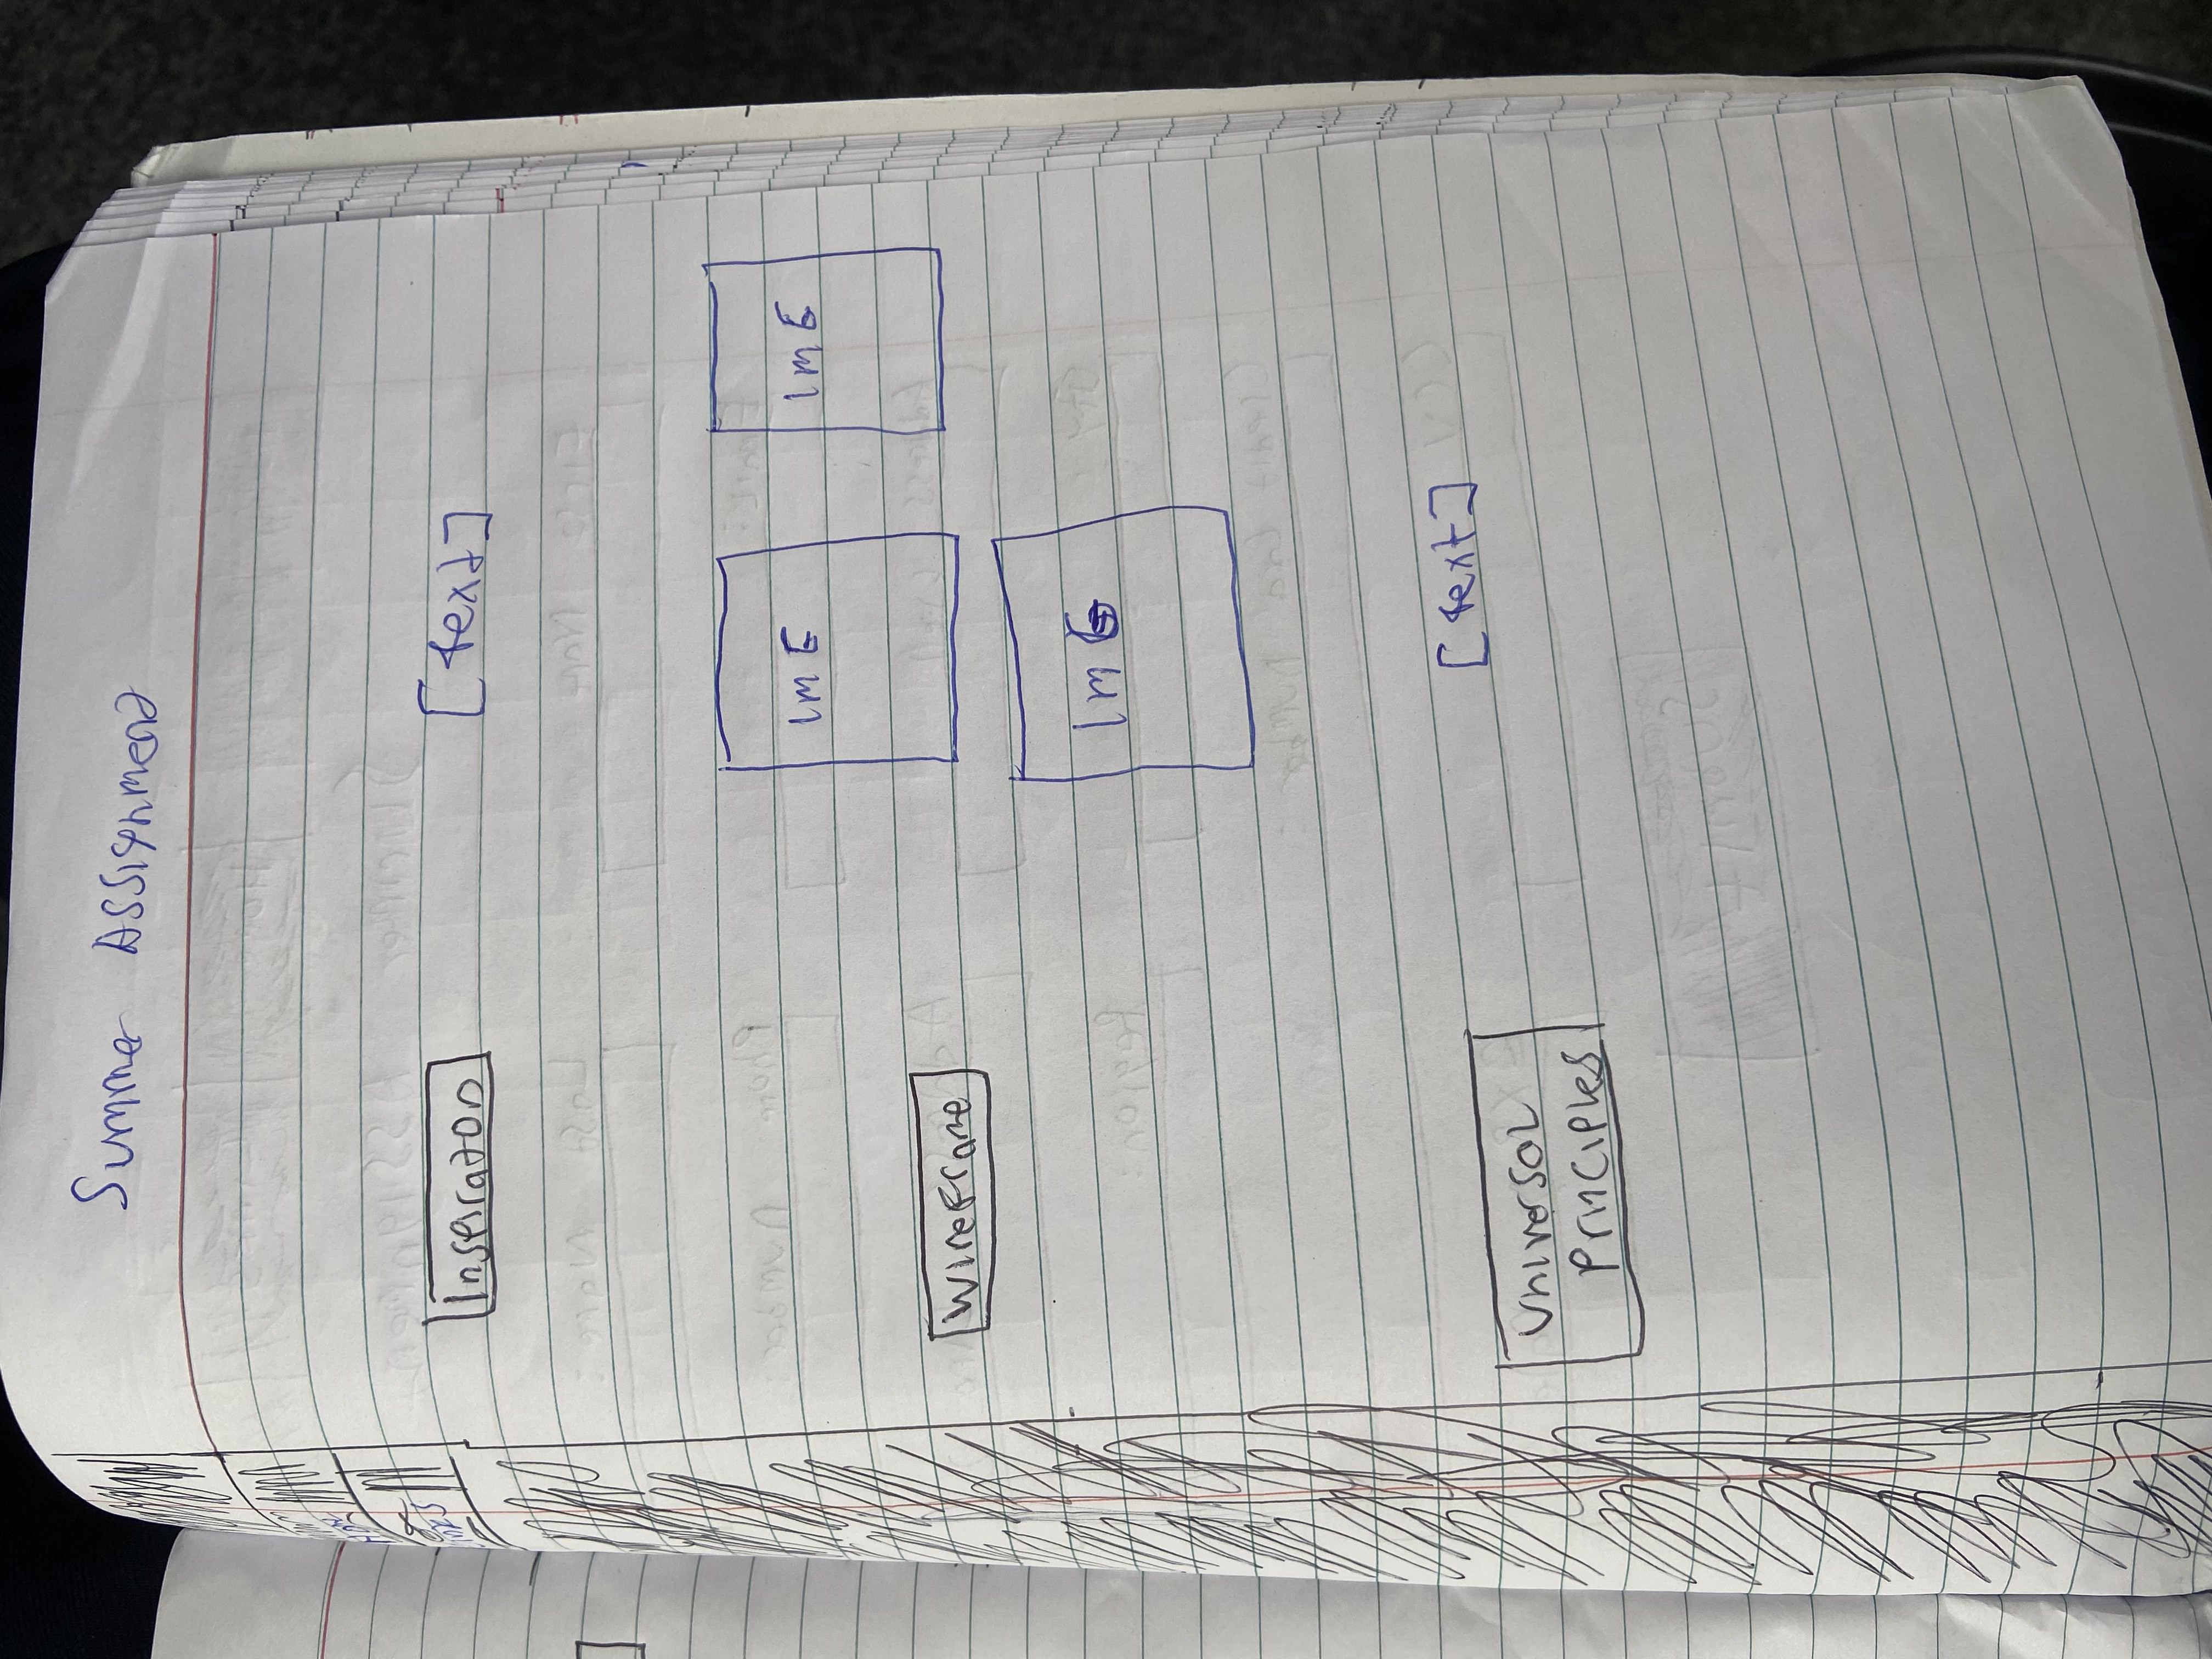 Summer Assignment
Inspiraton
[text]
Img
Img
Wireframe
Img
[text]
Universal
Principles